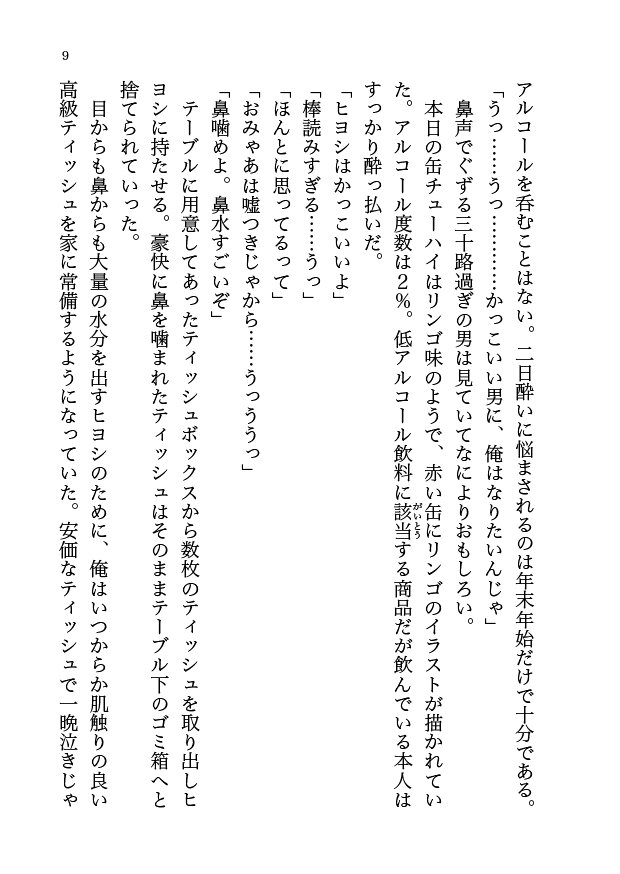 9
アルコールを呑むことはない。二日酔いに悩まされるのは年末年始だけで十分である。
「うっ……うっ…………かっこいい男に、俺はなりたいんじゃ」
鼻声でぐずる三十路過ぎの男は見ていてなによりおもしろい。
本日の缶チューハイはリンゴ味のようで、赤い缶にリンゴのイラストが描かれてい
た。アルコール度数は２％。低アルコール飲料に該当する商品だが飲んでいる本人は
がいとう
すっかり酔っ払いだ。
「ヒヨシはかっこいいよ」
「棒読みすぎる……うっ」
「ほんとに思ってるって」
「おみゃあは嘘つきじゃから……うっううっ」
「鼻噛めよ。鼻水すごいぞ」
テーブルに用意してあったティッシュボックスから数枚のティッシュを取り出しヒ
ヨシに持たせる。豪快に鼻を噛まれたティッシュはそのままテーブル下のゴミ箱へと
捨てられていった。
目からも鼻からも大量の水分を出すヒヨシのために、俺はいつからか肌触りの良い
高級ティッシュを家に常備するようになっていた。安価なティッシュで一晩泣きじゃ